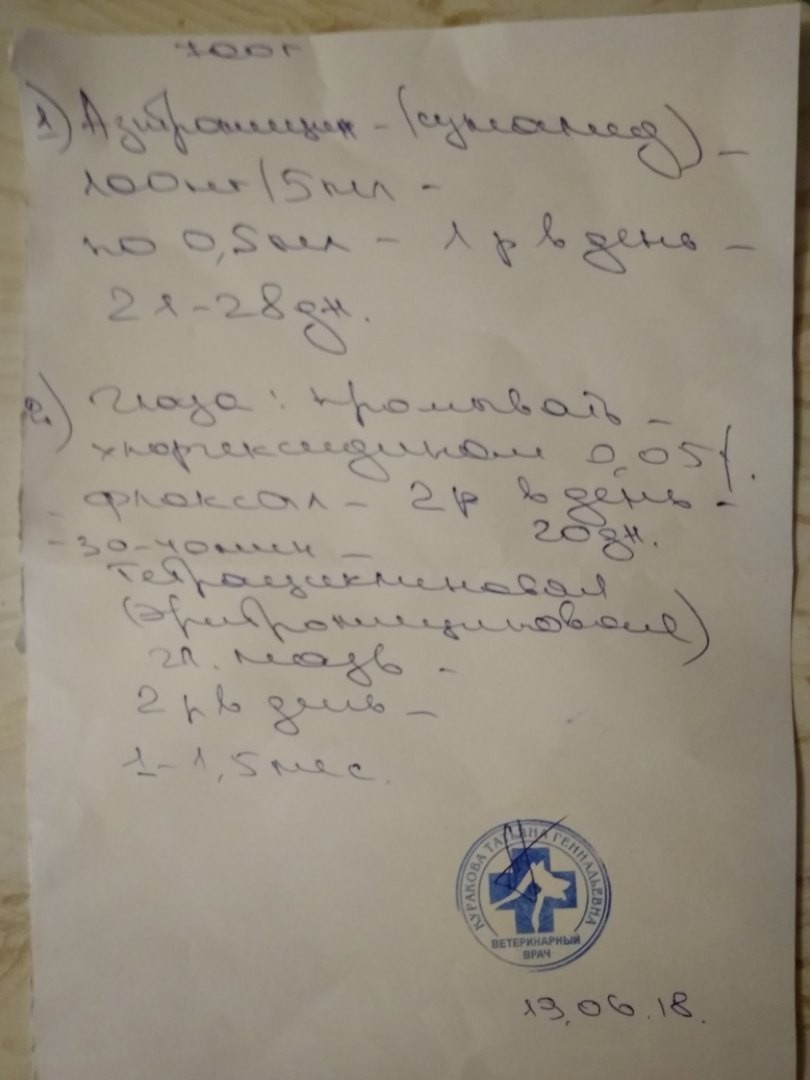 700г
1) Азитромицин - (сумамед) -
100мг/5мл -
по 0,5мл - 1 р в день -
21-28 дн.
2) Глаза: промывать -
хлоргексидином 0,05%.
- флоксал - 2р в день -
20 дн.
- 30-40мин -
тетрациклиновая
(эритромициновая)
гл. мазь -
2 р в день -
1-1,5 мес.
КУРАКОВА ТАТЬЯНА ГЕННАДЬЕВНА
ВЕТЕРИНАРНЫЙ
ВРАЧ
19.06.18.